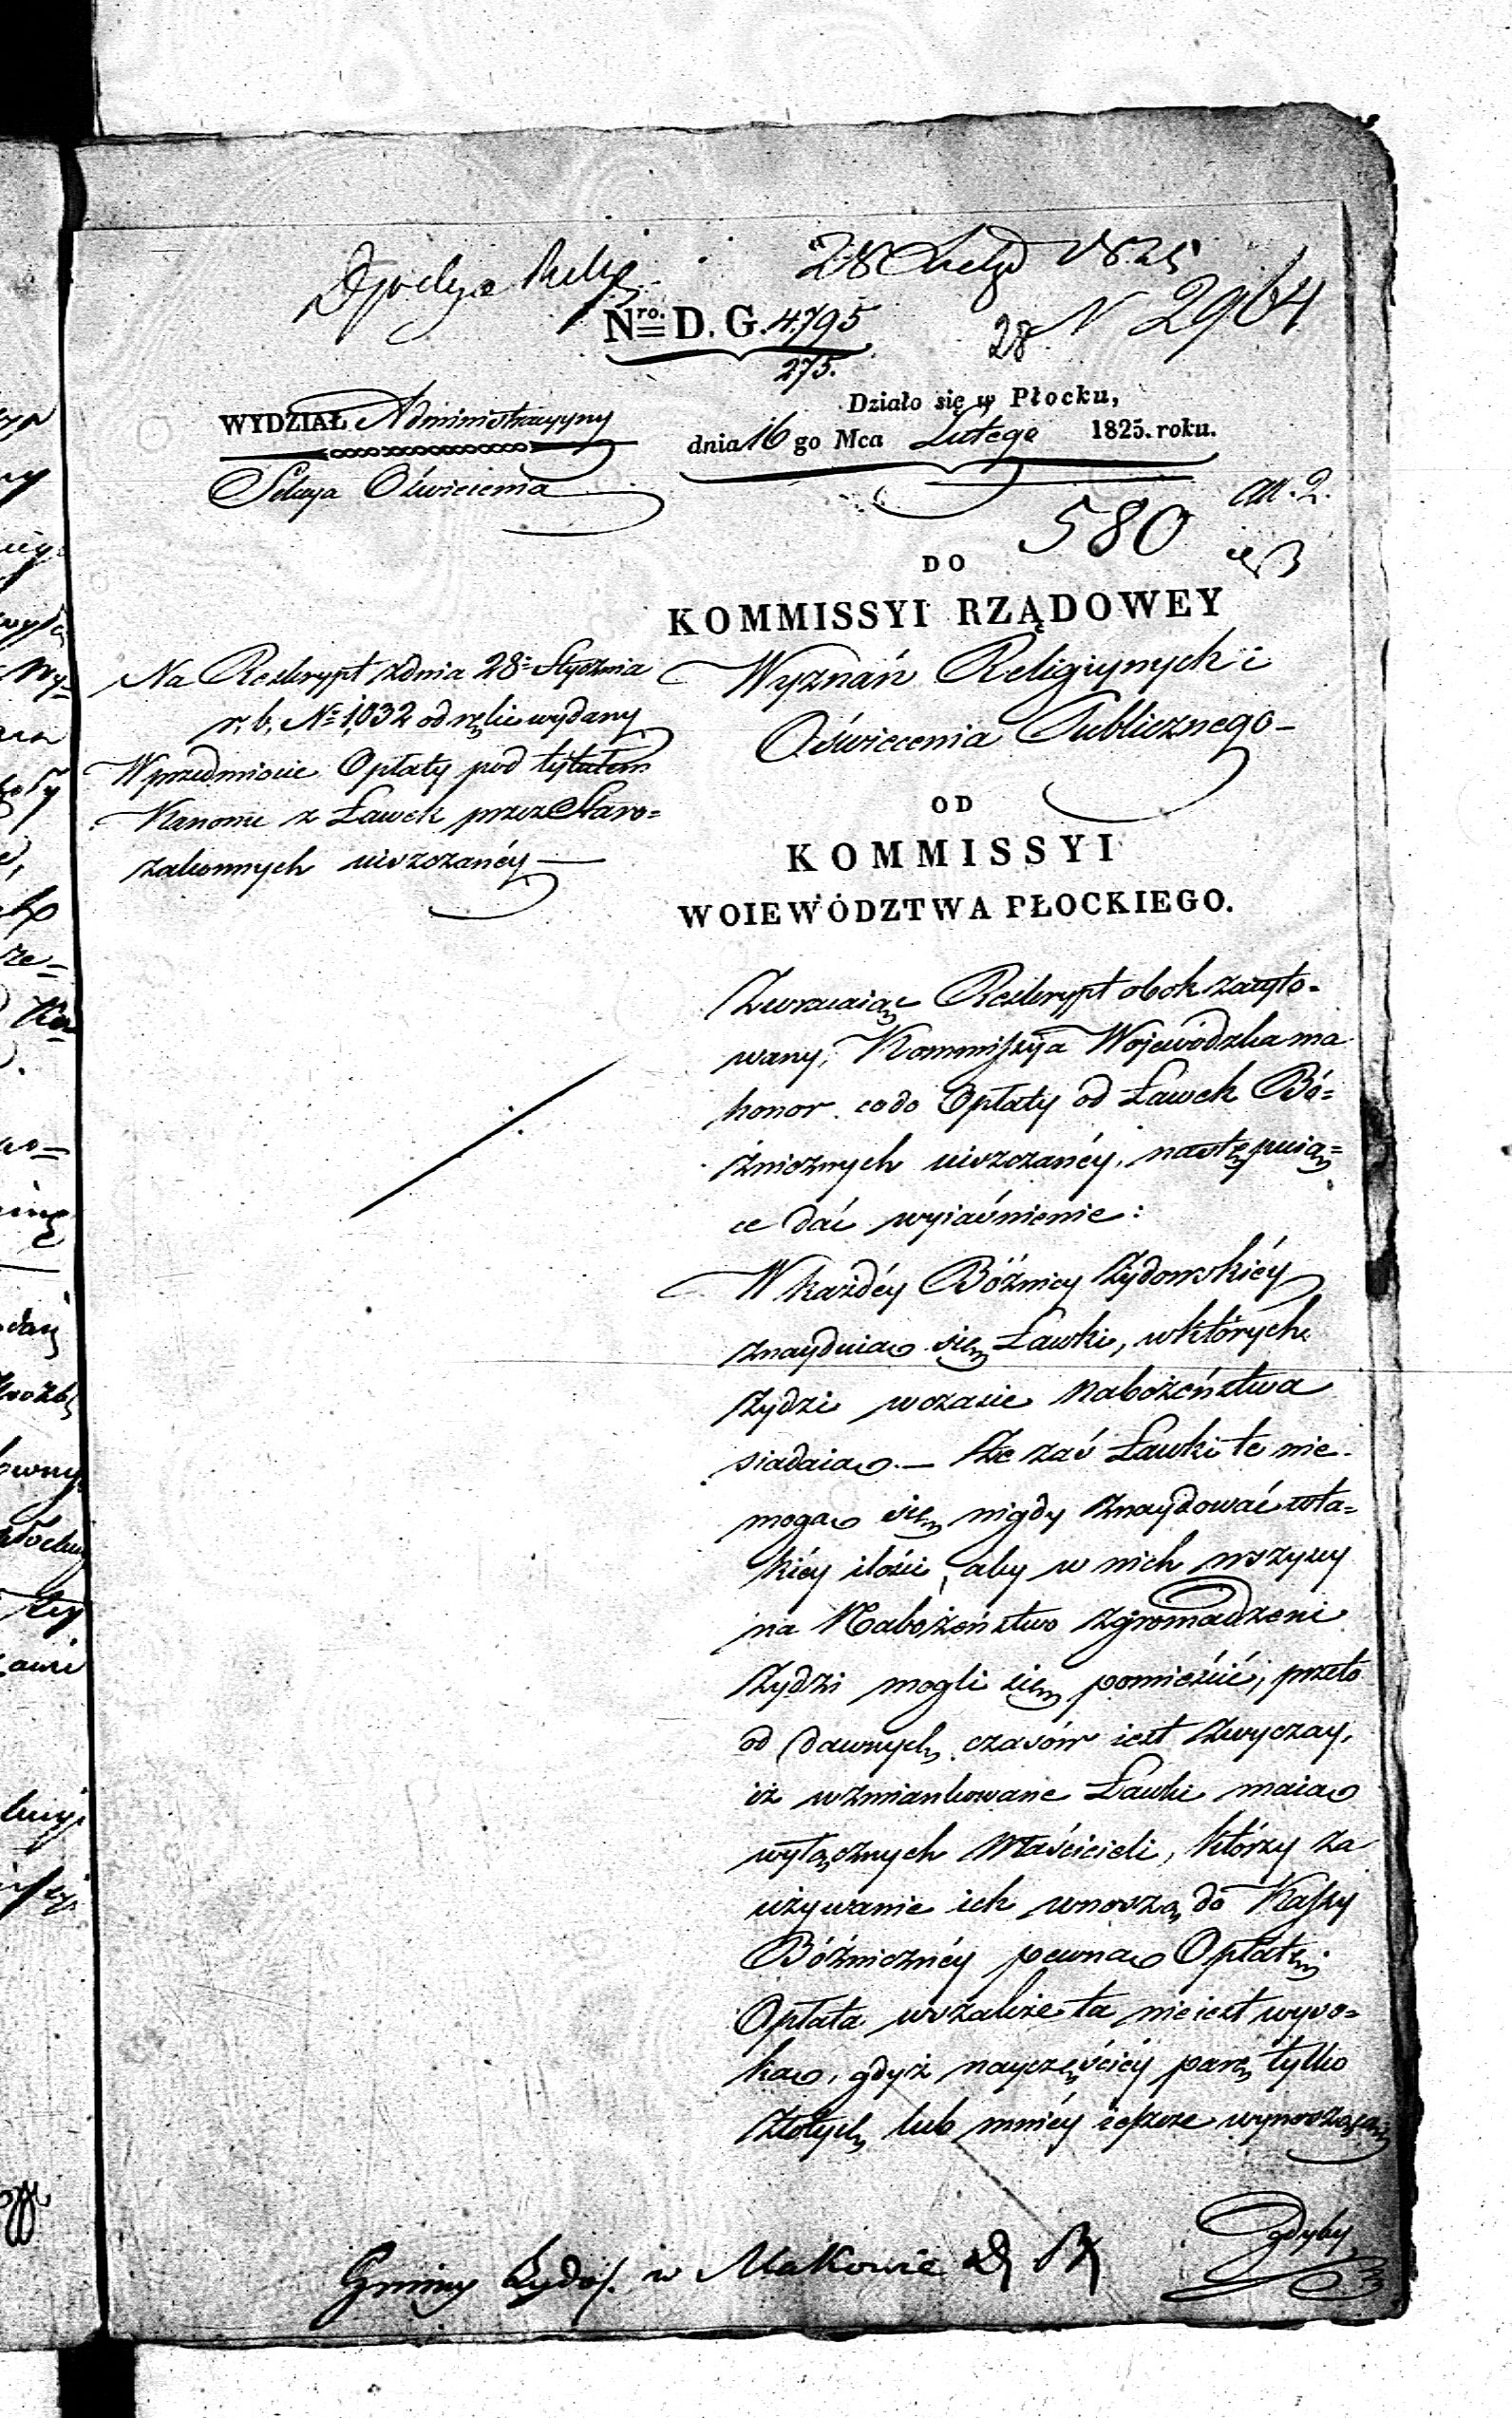 28 1825
28 N 2964
Nro. D. G. 4795
275.
WYDZIAŁ Administracyjny
Sekcya Oświecenia
Działo się w Płocku,
dnia 16 go Mca Lutego 1825. roku.
580
DO
KOMMISSYI RZĄDOWEY
Wyznań Religiynych i
Oświecenia Publicznego
OD
KOMMISSYI
WOIEWÓDZTWA PŁOCKIEGO.
Na Reskrypt zdnia 28 Stycznia
r. b. No 1032 odręcznie wydany
W przedmiocie Opłaty pod tytułem
Kanonu z Ławek przez Staro=
zakonnych uiszczanéy
Zwracaiąc Reskrypt obok zacyto-
wany, Kommissyia Wojewódzka ma
honor co do Opłaty od Ławek Bó=
żnicznych uiszczanéy, następuią=
ce dać wyiaśnienie:
W każdéy Bóżnicy żydowskiéy
znayduią się Ławki, w których
żydzi w czasie Nabożeństwa
siadaią. — Że zaś Ławki te nie
mogą się nigdy znaydować w ta=
kiéy ilości, aby w nich wszyscy
na Nabożeństwo zgromadzeni
żydzi mogli się pomieścić, przeto
od dawnych czasów iest zwyczay,
iż wzmiankowane Ławki maią
wyłącznych Właścicieli, którzy za
używanie ich wnoszą do Kassy
Bóżnicznéy pewną Opłatę.
Opłata wszakże ta nie iest wyso=
ką, gdyż nayczęściéy parę tylko
złotych lub mniéy ieszcze wynosząca
gdyby
Gminy Żydos. w Makowie